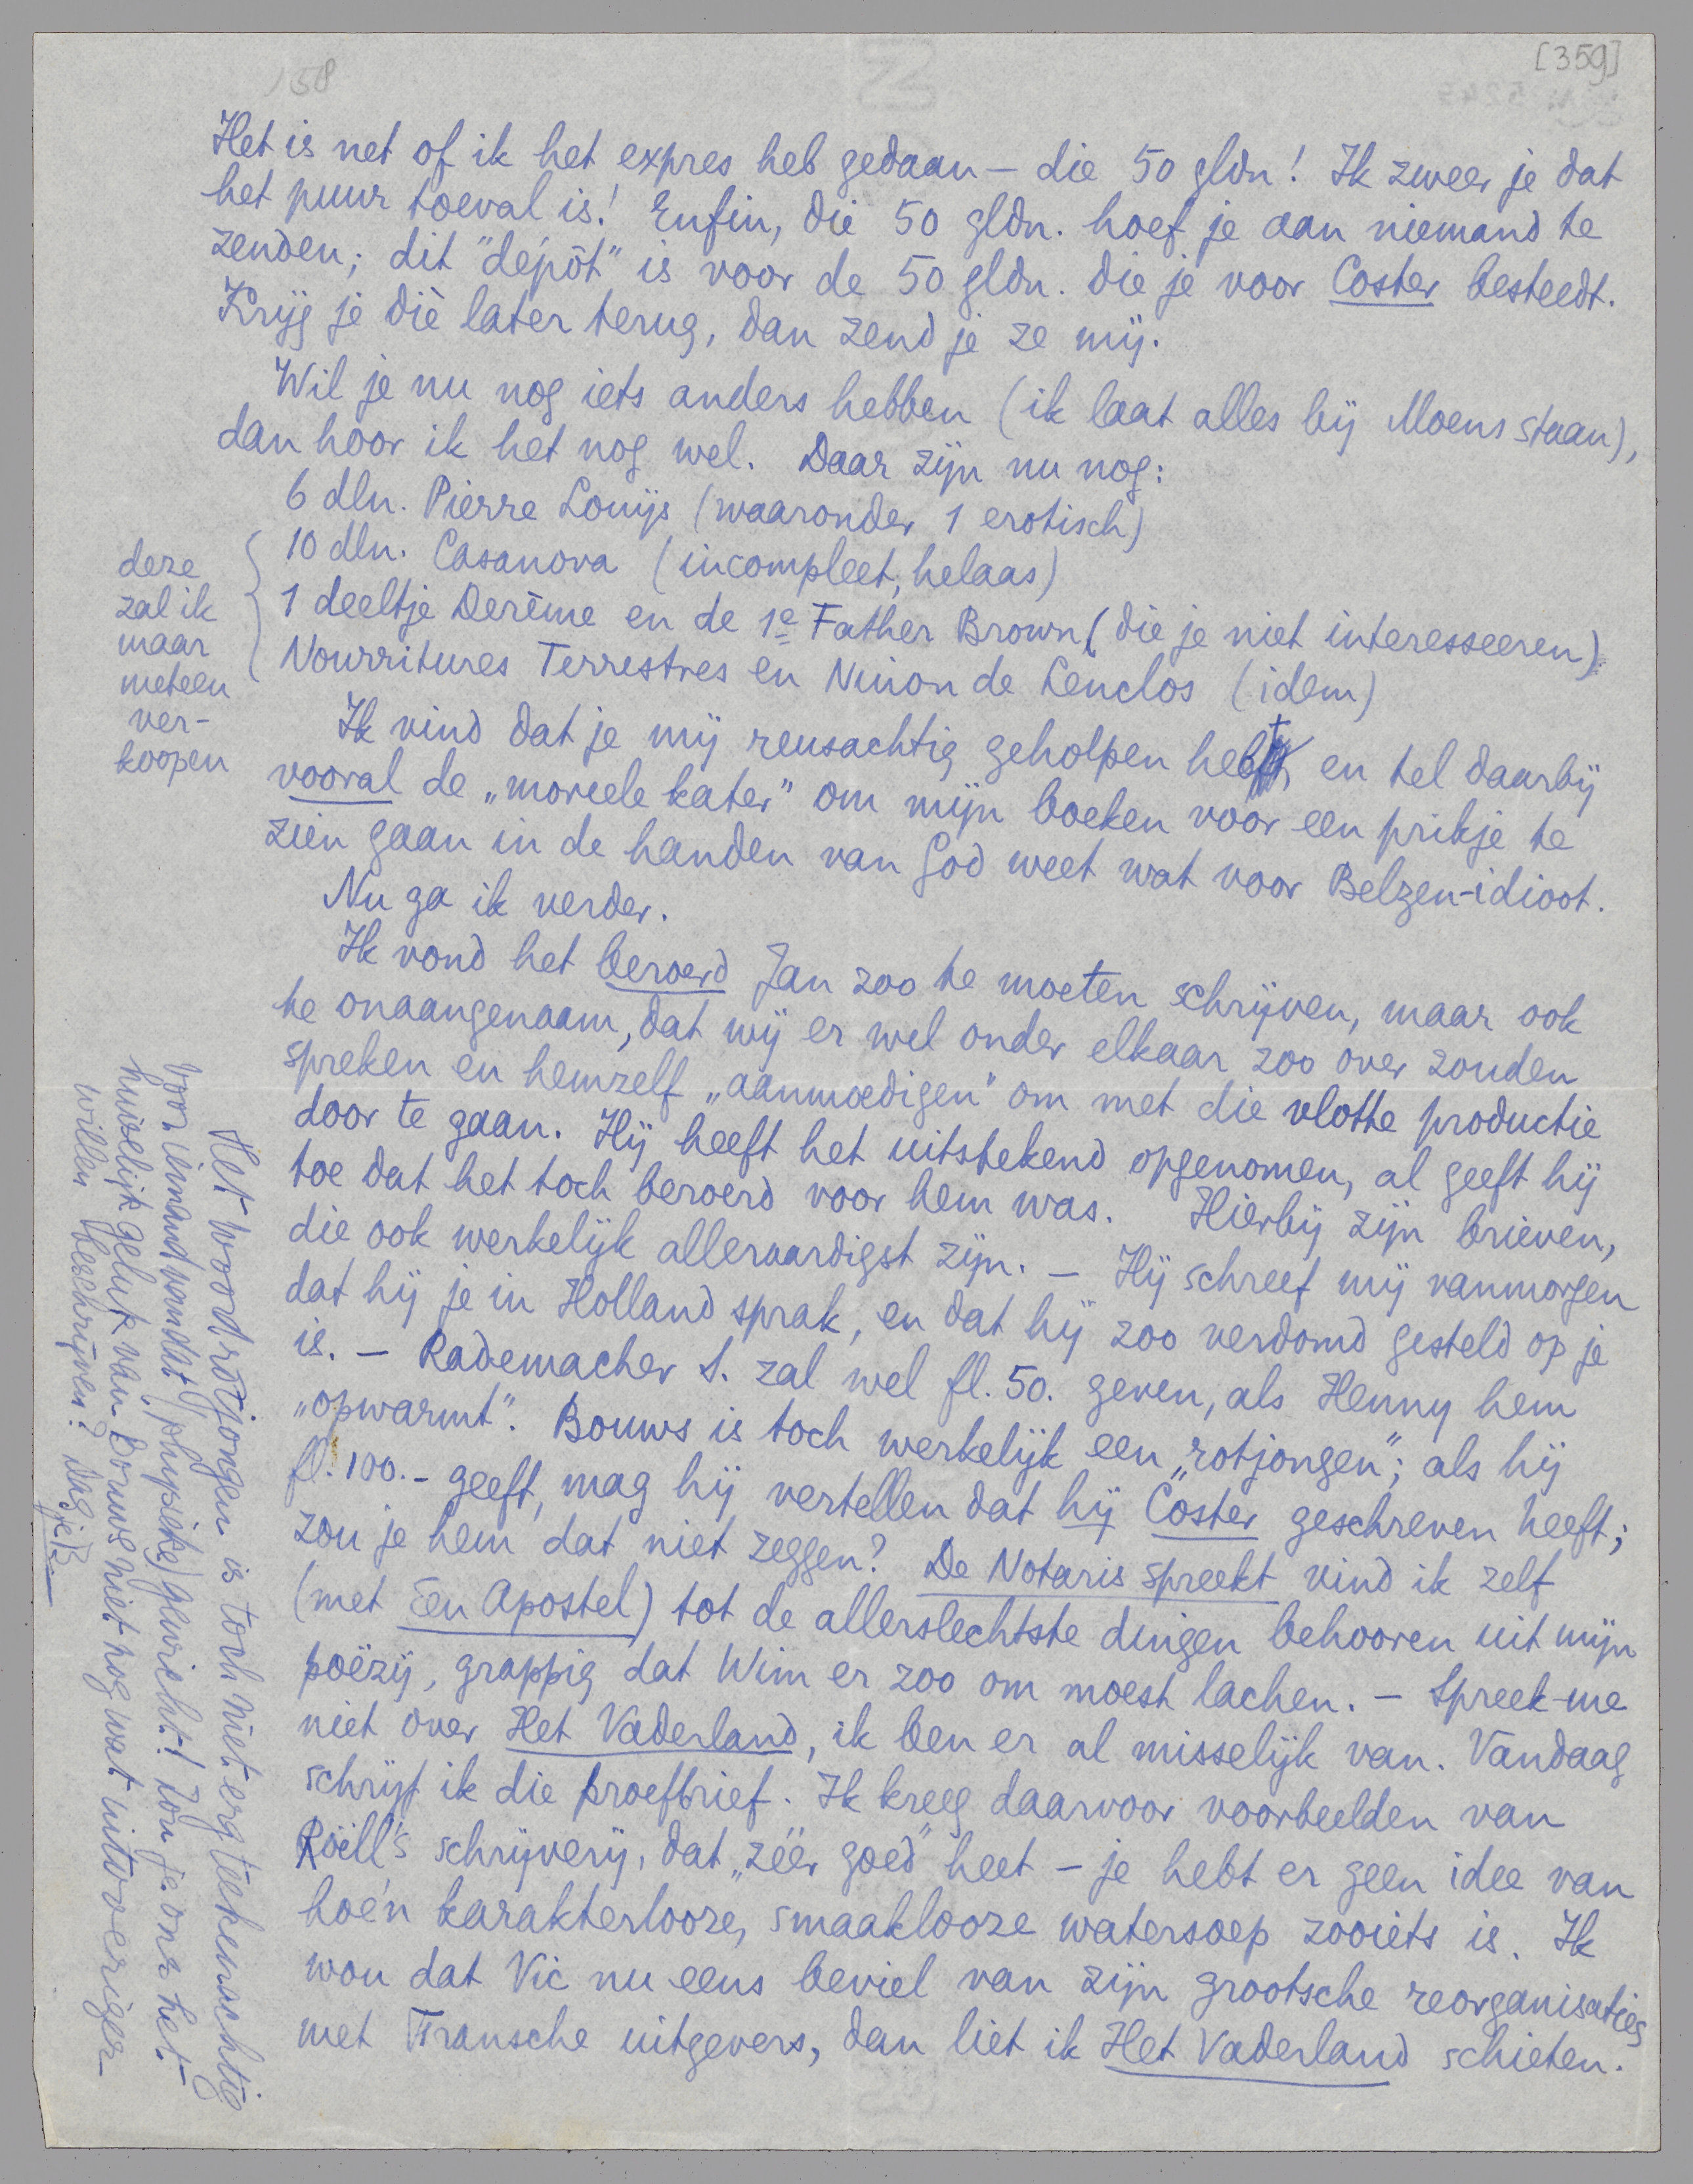 [359]
158
Het is net of ik het expres heb gedaan – die 50 gldn! Ik zweer je dat
het puur toeval is! Enfin, die 50 gldn. hoef je aan niemand te
zenden; dit "depôt" is voor de 50 gldn. die je voor Coster besteedt.
Krijg je diè later terug, dan zend je ze mij.
Wil je nu nog iets anders hebben (ik laat alles bij Moens staan),
dan hoor ik het nog wel. Daar zijn nu nog:
6 dln. Pierre Louÿs (waaronder 1 erotisch)
10 dln. Casanova (incompleet, helaas)
1 deeltje Derême en de 1e Father Brown (die je niet interesseeren)
Nourritures Terrestres en Ninon de Lenclos (idem)
deze
zal ik
maar
meteen
ver-
koopen
Ik vind dat je mij reusachtig geholpen hebt, en tel daarbij
vooral de „moreele kater" om mijn boeken voor een prikje te
zien gaan in de handen van God weet wat voor Belzen-idioot.
Nu ga ik verder.
Ik vond het beroerd Jan zoo te moeten schrijven, maar ook
te onaangenaam, dat wij er wel onder elkaar zoo over zouden
spreken en hemzelf „aanmoedigen" om met die vlotte productie
door te gaan. Hij heeft het uitstekend opgenomen, al geeft hij
toe dat het toch beroerd voor hem was. Hierbij zijn brieven,
die ook werkelijk alleraardigst zijn. – Hij schreef mij vanmorgen
dat hij je in Holland sprak, en dat hij zoo verdomd gesteld op je
is. – Rademacher S. zal wel fl. 50. geven, als Henny hem
„opwarmt". Bouws is toch werkelijk een „rotjongen"; als hij
fl. 100.- geeft, mag hij vertellen dat hij Coster geschreven heeft;
zou je hem dat niet zeggen? De Notaris spreekt vind ik zelf
(met Een Apostel) tot de allerslechtste dingen behooren uit mijn
poëzij, grappig dat Wim er zoo om moest lachen. – Spreek me
niet over Het Vaderland, ik ben er al misselijk van. Vandaag
schrijf ik die proefbrief. Ik kreeg daarvoor voorbeelden van
Röell's schrijverij, dat „zéér goed" heet – je hebt er geen idee van
hoe'n karakterlooze, smaaklooze watersoep zooiets is. Ik
wou dat Vic nu eens beviel van zijn grootsche reorganisaties
met Fransche uitgevers, dan liet ik Het Vaderland schieten.
Het woord rotjongen is toch niet erg teekenachtig
voor iemand van dat (physieke) gewicht! Zou je ons het
huwelijksgeluk van Bouws niet nog wat uitvoeriger
willen beschrijven? Dag je E.